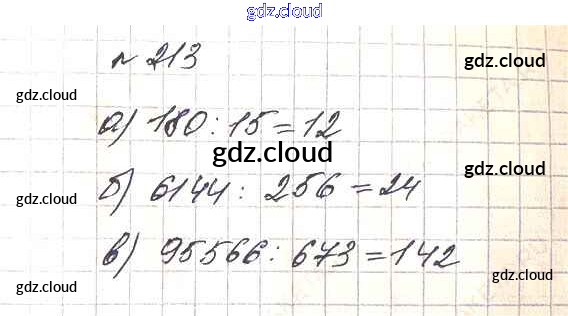 gdz.cloud
№ 213
gdz.cloud
gdz.cloud
gdz.cloud
а) 180 : 15 = 12
gdz.cloud
gdz.cloud
gdz.cloud
б) 6144 : 256 = 24
gdz.cloud
в) 95566 : 673 = 142
gdz.cloud
gdz.cloud